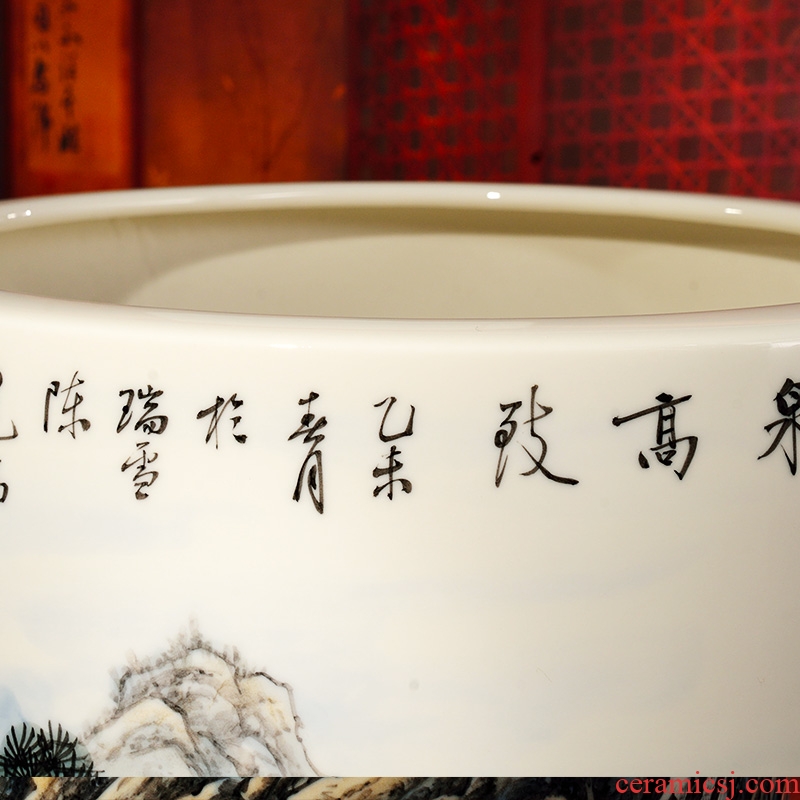 泉
高
致
乙未
春月
於
瑞雪
陈
ceramicsj.com